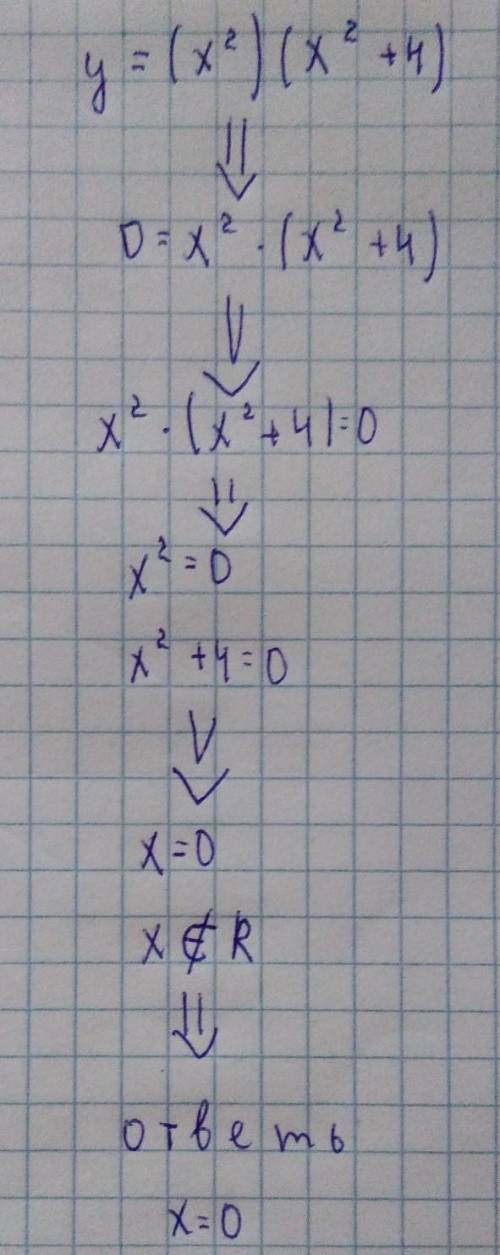 y = (x²)(x² + 4)
⇓
0 = x² · (x² + 4)
⇓
x² · (x² + 4) = 0
⇓
x² = 0
x² + 4 = 0
⇓
x = 0
x ∉ R
⇓
ответь
x = 0